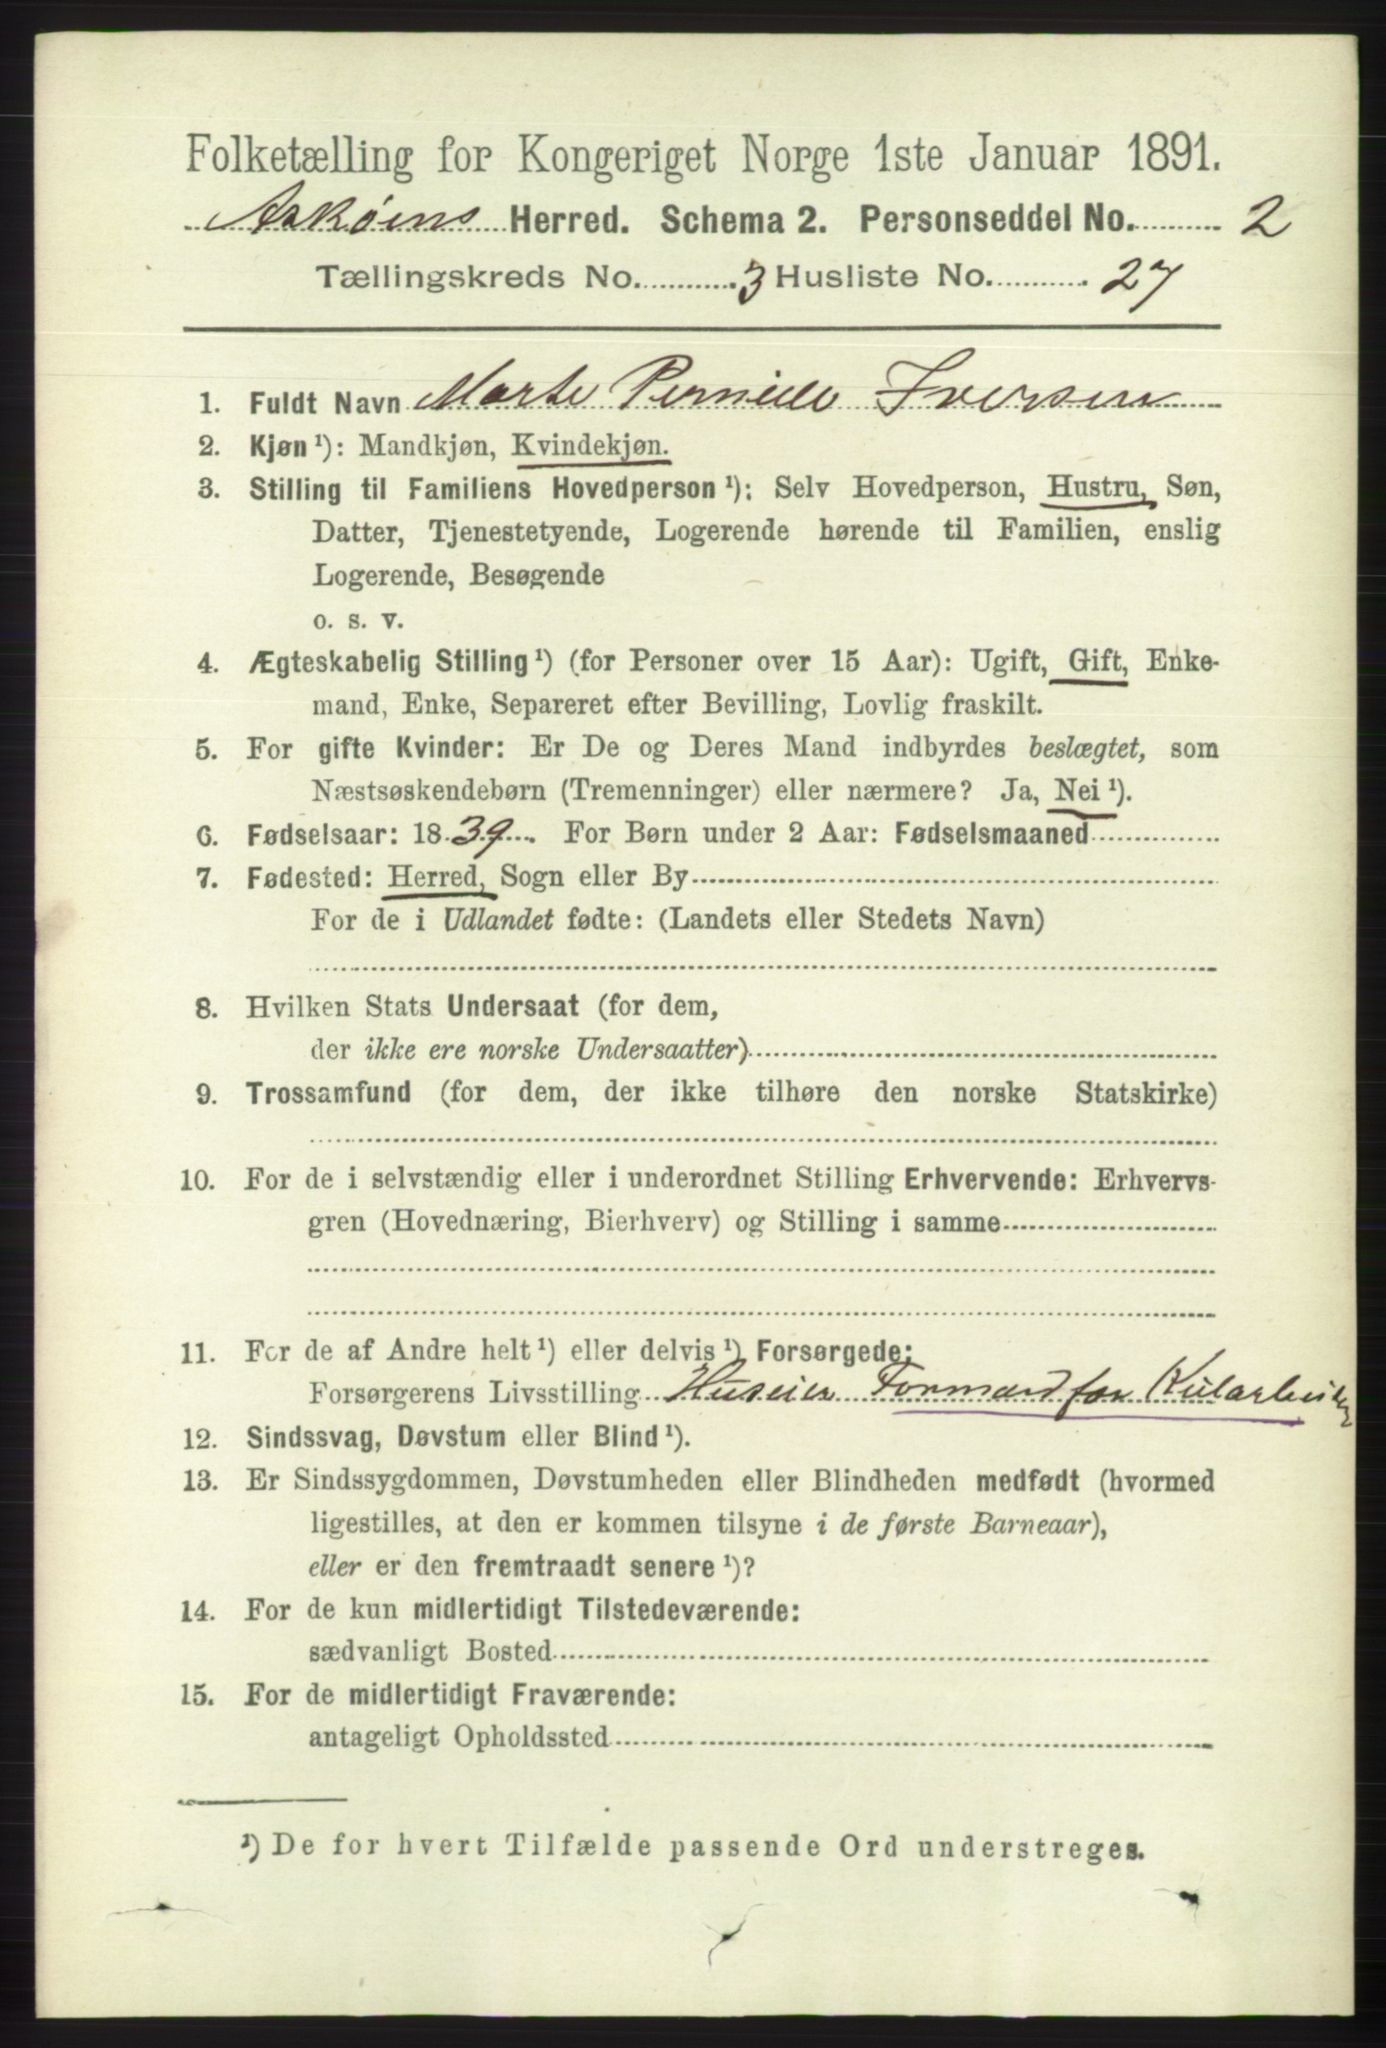 Folketælling for Kongeriget Norge 1ste Januar 1891.
Askøens Herred. Schema 2. Personseddel No. 2
Tællingskreds No. 3 Husliste No. 27
1. Fuldt Navn Marte Pernille Iversen
2. Kjøn ¹): Mandkjøn, Kvindekjøn.
3. Stilling til Familiens Hovedperson ¹): Selv Hovedperson, Hustru, Søn,
Datter, Tjenestetyende, Logerende hørende til Familien, enslig
Logerende, Besøgende
o. s. v.
4. Ægteskabelig Stilling ¹) (for Personer over 15 Aar): Ugift, Gift, Enke-
mand, Enke, Separeret efter Bevilling, Lovlig fraskilt.
5. For gifte Kvinder: Er De og Deres Mand indbyrdes beslægtet, som
Næstsøskendebørn (Tremenninger) eller nærmere? Ja, Nei ¹).
6. Fødselsaar: 1839. For Børn under 2 Aar: Fødselsmaaned
7. Fødested: Herred, Sogn eller By
For de i Udlandet fødte: (Landets eller Stedets Navn)
8. Hvilken Stats Undersaat (for dem,
der ikke ere norske Undersaatter)
9. Trossamfund (for dem, der ikke tilhøre den norske Statskirke)
10. For de i selvstændig eller i underordnet Stilling Erhvervende: Erhvervs-
gren (Hovednæring, Bierhverv) og Stilling i samme
11. For de af Andre helt ¹) eller delvis ¹) Forsørgede:
Forsørgerens Livsstilling Huseier Formand for
12. Sindssvag, Døvstum eller Blind ¹).
13. Er Sindssygdommen, Døvstumheden eller Blindheden medfødt (hvormed
ligestilles, at den er kommen tilsyne i de første Barneaar),
eller er den fremtraadt senere ¹)?
14. For de kun midlertidigt Tilstedeværende:
sædvanligt Bosted
15. For de midlertidigt Fraværende:
antageligt Opholdssted
¹) De for hvert Tilfælde passende Ord understreges.